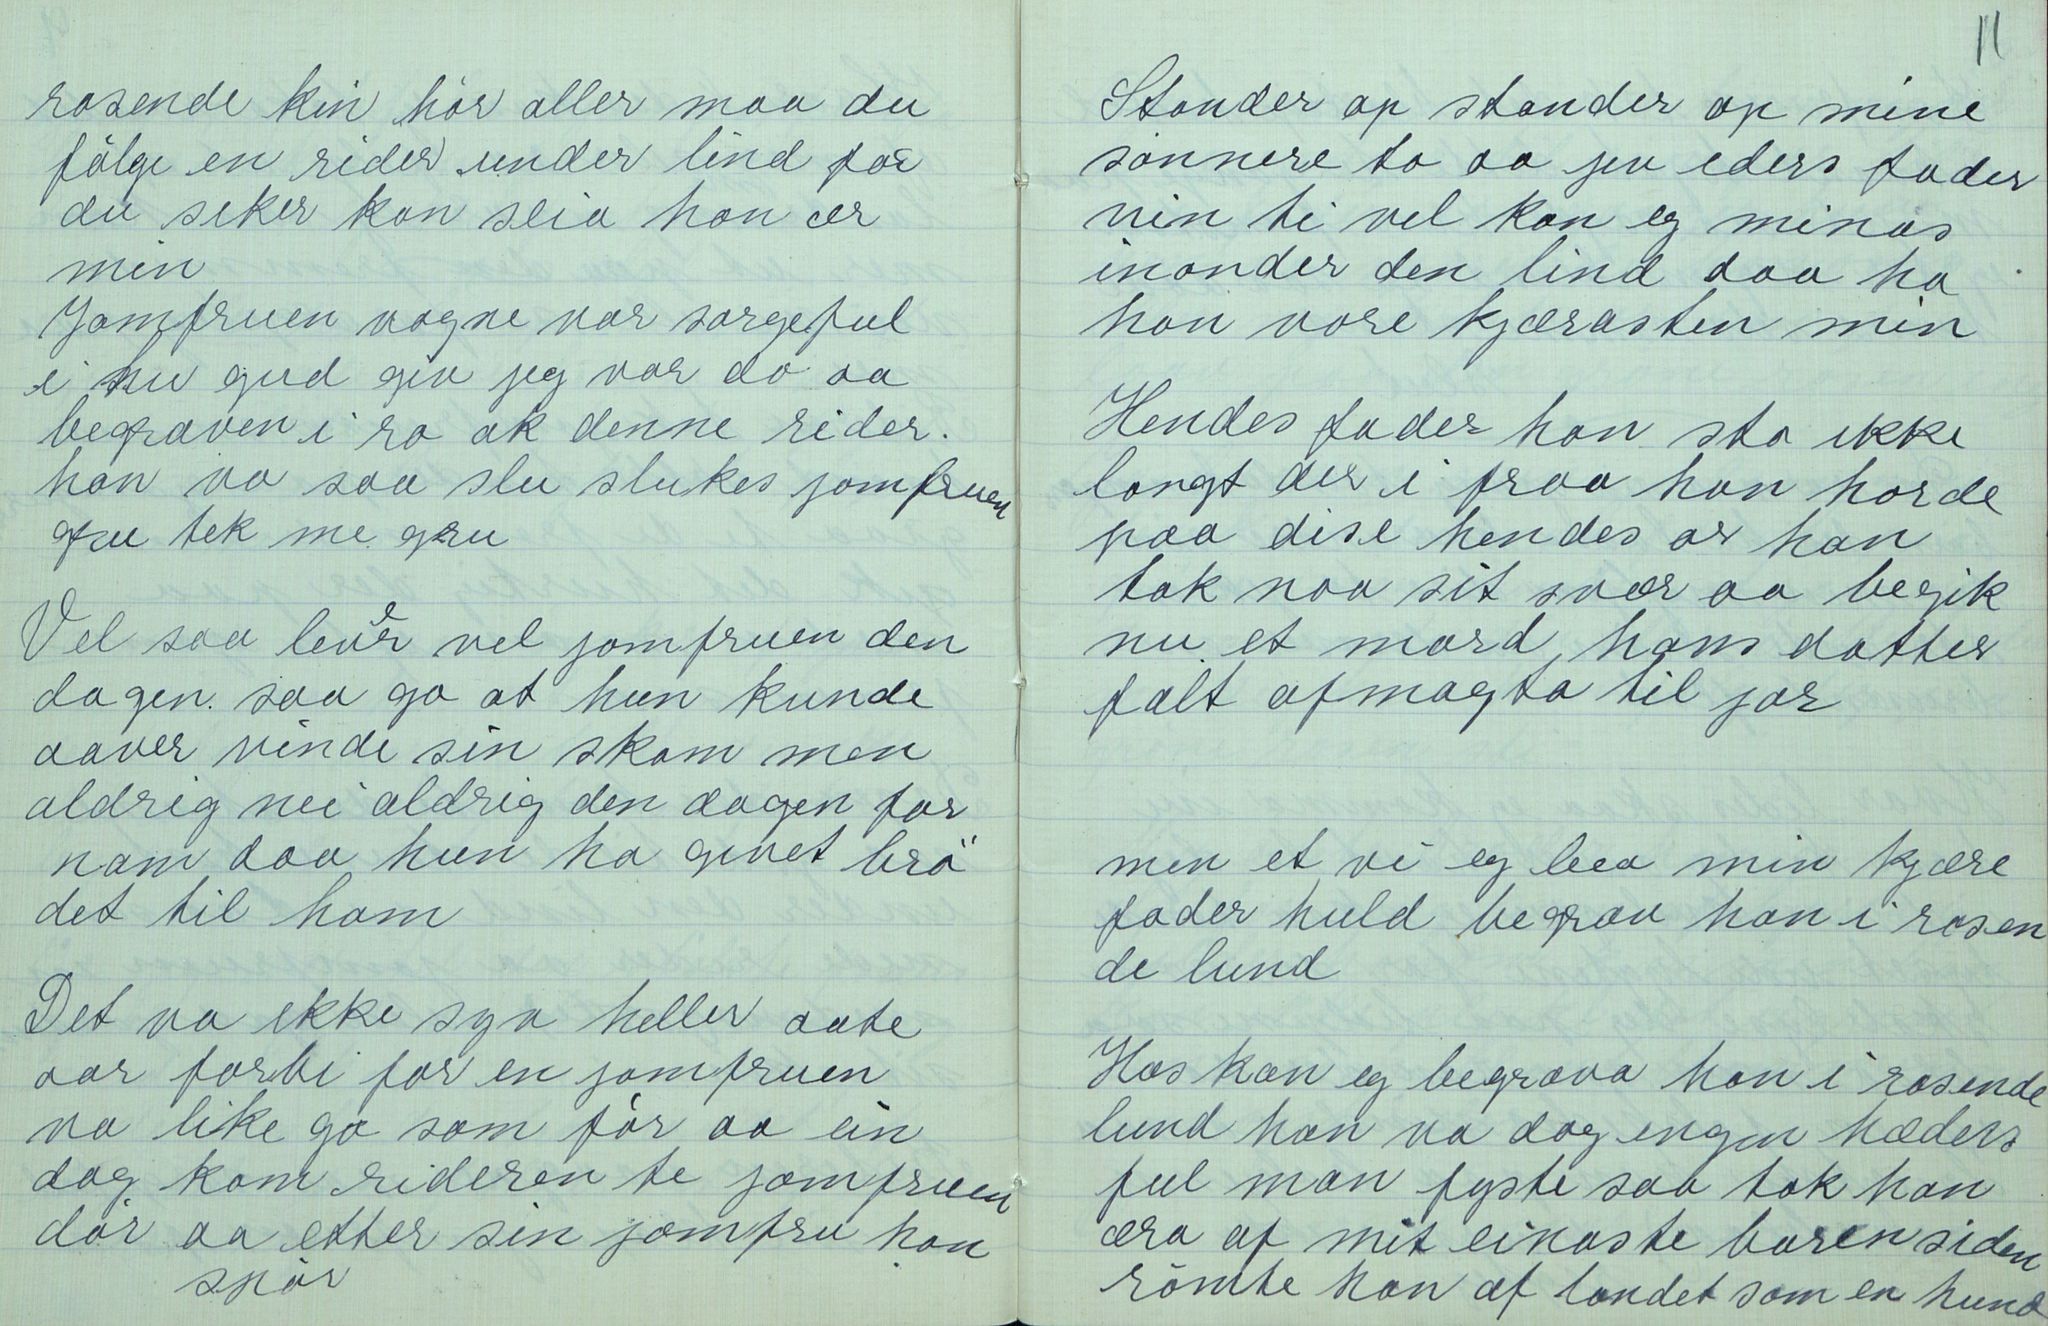 rosende kin hör aller maa du
fölge en rider under lind for
du seker kan seia han er
min
Jomfruen vogne var sorgeful
i hu gud giv jeg var dö aa
begraven i ro ak denne rider.
han va saa slu slukes jomfruen
gru tek me gru
Vel saa lever vel jomfruen den
dagen. saa go at hun kunde
aaver vinde sin skam men
aldrig nei aldrig den dagen for
nam daa hun ha givet brö
det til ham
Det va ikke syv heller aate
aar forbi for en jomfruen
va like go som för aa ein
dag kom rideren te jomfruen
dör aa etter sin jomfru han
spör
11
Stander op stander op mine
sönnere to aa jev eders fader
vin ti vel kan eg minas
inonder den lind daa ha
han vore kjærasten min
Hendes fader han sto ikke
langt der i fraa han horde
paa dise hendes or han
tok naa sit svær aa begik
nu et mord, hans datter
falt afmagta til jor
men et vi eg bea min kjære
fader huld begrav han i rosen
de lund
Hos kan eg begrava han i rosende
lund han va dog engen hæders
ful man fyste saa tok han
æra af mit einaste baren siden
römte han af landet som en hund